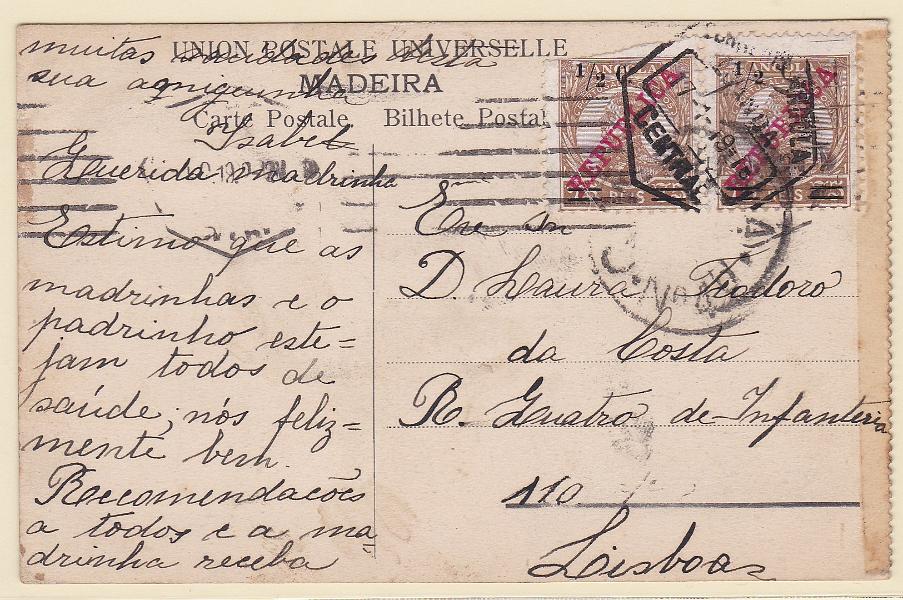 muitas saudades desta
sua amiguinha
Isabel
UNION POSTALE UNIVERSELLE
MADEIRA
Carte Postale Bilhete Postal
Querida madrinha
Estimo que as
madrinhas e o
padrinho este=
jam todos de
saúde, nós feliz=
mente bem.
Recomendações
a todos e a ma
drinha receba
1/2 C
REPUBLICA
1/2 C
REPUBLICA
CENTRAL
Exma Snra
D. Laura Teodoro
da Costa
R. Quatro de Infanteria
110
Lisboa